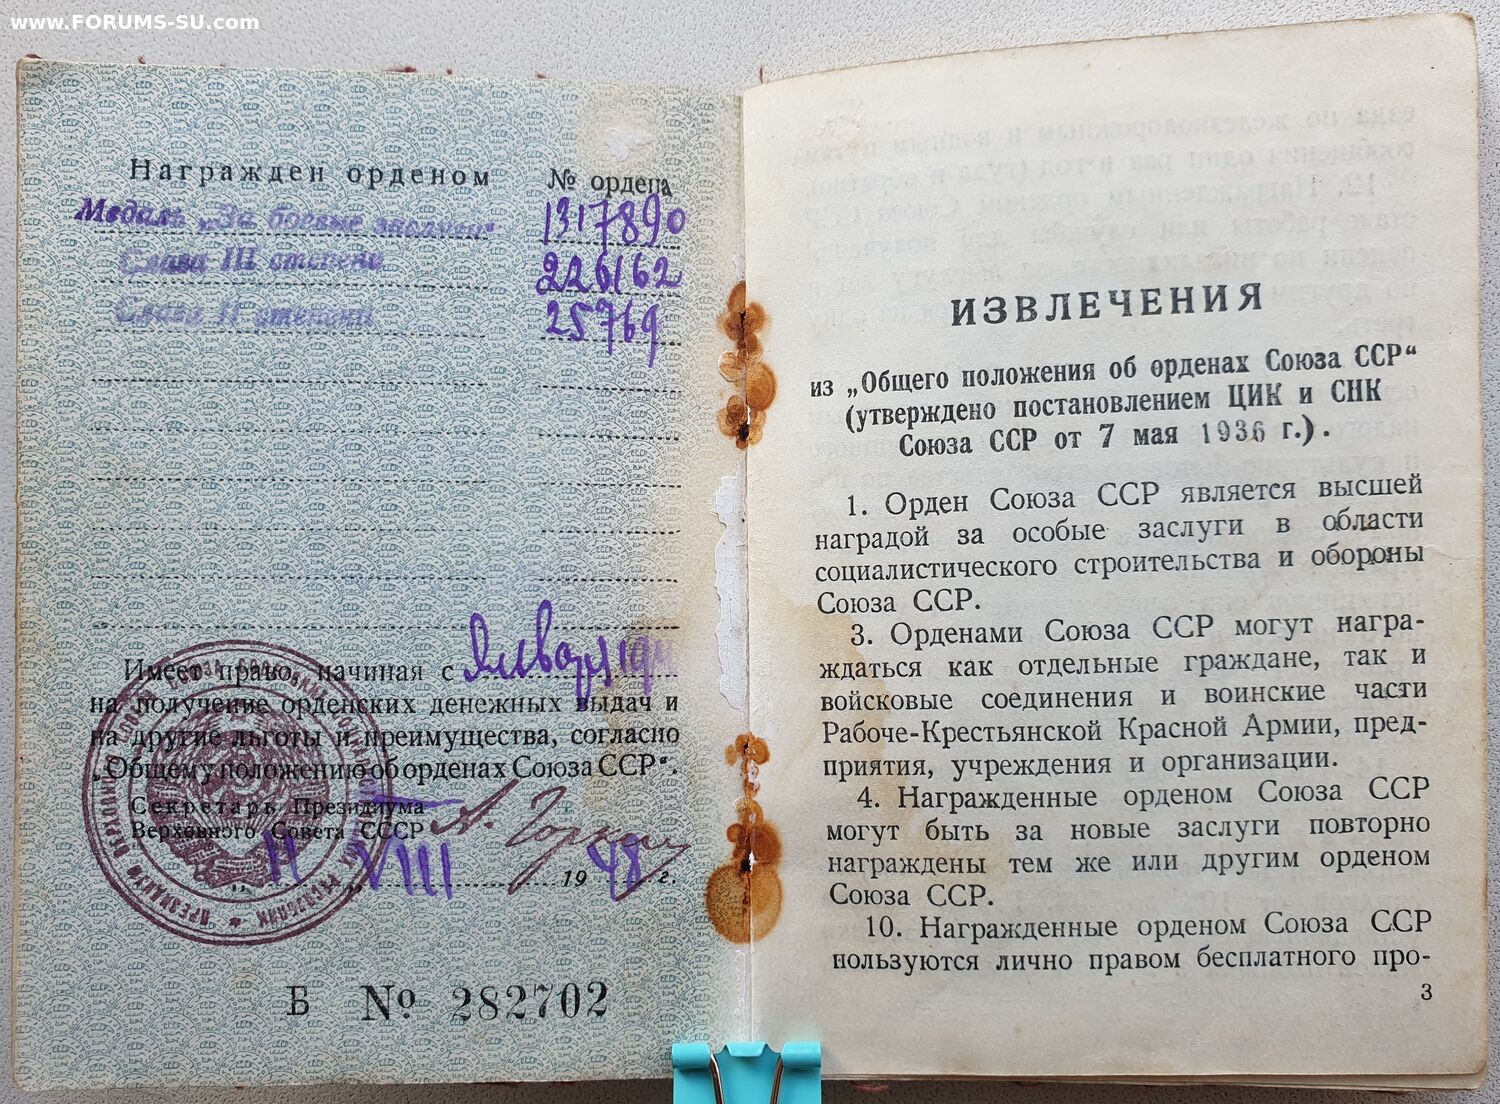 www.FORUMS-SU.com
Награжден орденом № ордена
Медаль „За боевые заслуги“ 1317890
Слава III степени 226162
Слава II степени 25769
Имеет право, начиная с Января 194
на получение орденских денежных выдач и
на другие льготы и преимущества, согласно
„Общему положению об орденах Союза ССР“.
Секретарь Президиума
Верховного Совета СССР А. Горкин
11 VIII 1948 г.
Б № 282702
ИЗВЛЕЧЕНИЯ
из „Общего положения об орденах Союза ССР“
(утверждено постановлением ЦИК и СНК
Союза ССР от 7 мая 1936 г.).
1. Орден Союза ССР является высшей
наградой за особые заслуги в области
социалистического строительства и обороны
Союза ССР.
3. Орденами Союза ССР могут награ-
ждаться как отдельные граждане, так и
войсковые соединения и воинские части
Рабоче-Крестьянской Красной Армии, пред-
приятия, учреждения и организации.
4. Награжденные орденом Союза ССР
могут быть за новые заслуги повторно
награждены тем же или другим орденом
Союза ССР.
10. Награжденные орденом Союза ССР
пользуются лично правом бесплатного про-
3